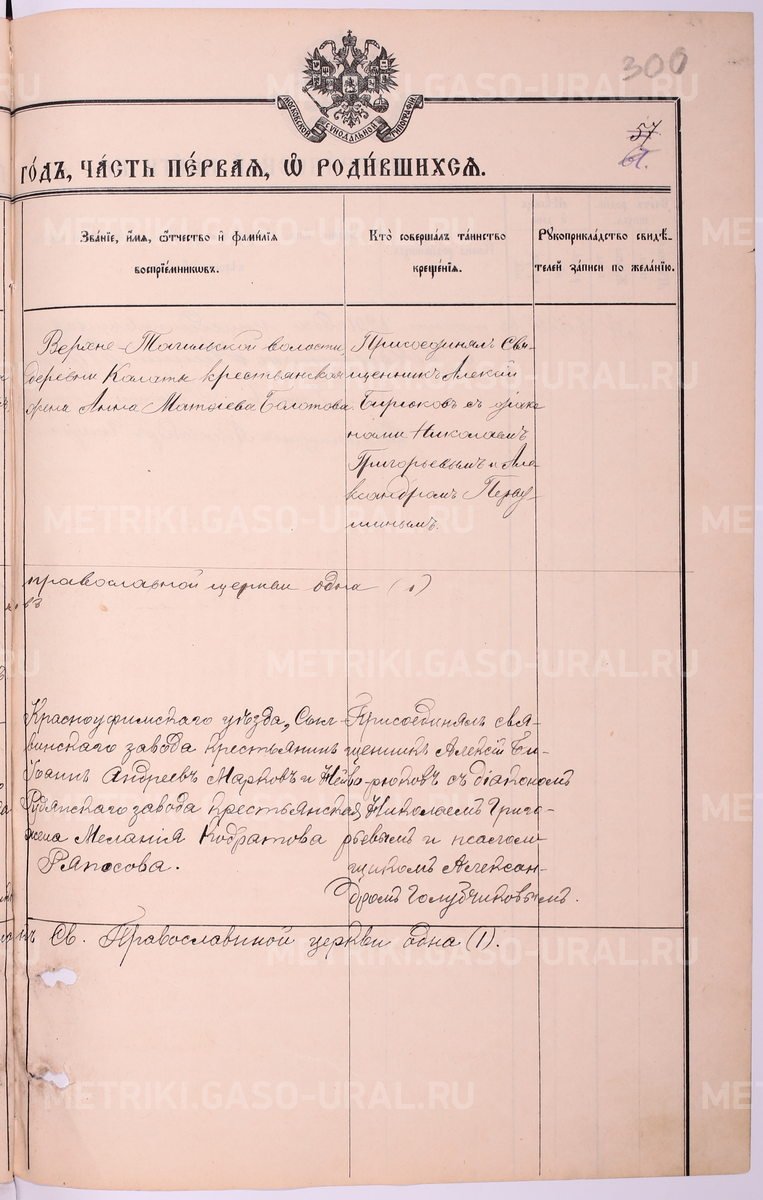 300
МОСКОВСКОЙ СѴНОДАЛЬНОЙ ТИПОГРАФІИ
57
61.
ГО́ДЪ, ЧА́СТЬ ПЕ́РВАЯ, Ѡ РОДИ́ВШИХСЯ.
Зва́ніе, и҆́мя, ѻ҆́тчество и҆ фами́лія
воспріе́мникѡвъ.
Кто̀ соверша́лъ та́инство
креще́нія.
Рꙋкоприкла́дство свидѣ́-
телей за́писи по жела́нію.
Верхне-Тагильской волости,
деревни Калаты крестьянская
жена Анна Матѳіева Болотова
Присоединялъ Свя-
щенникъ Алексій
Бирюковъ съ діако-
нами Николаемъ
Григорьевымъ и Але
ксандромъ Перву-
шинымъ.
православной церкви одна (1)
Красноуфимскаго уѣзда, Сыл-
винскаго завода крестьянинъ
Іоаннъ Андреевъ Марковъ и Нейво-
Рудянскаго завода крестьянская
жена Меланія Кодратова
Ряпосова.
Присоединялъ свя-
щенникъ Алексій Би-
рюковъ съ діакономъ
Николаемъ Григо-
рьевымъ и псалом-
щикомъ Алексан-
дромъ Голубчиковымъ.
къ Св. Православной церкви одна (1).
METRIKI.GASO-URAL.RU